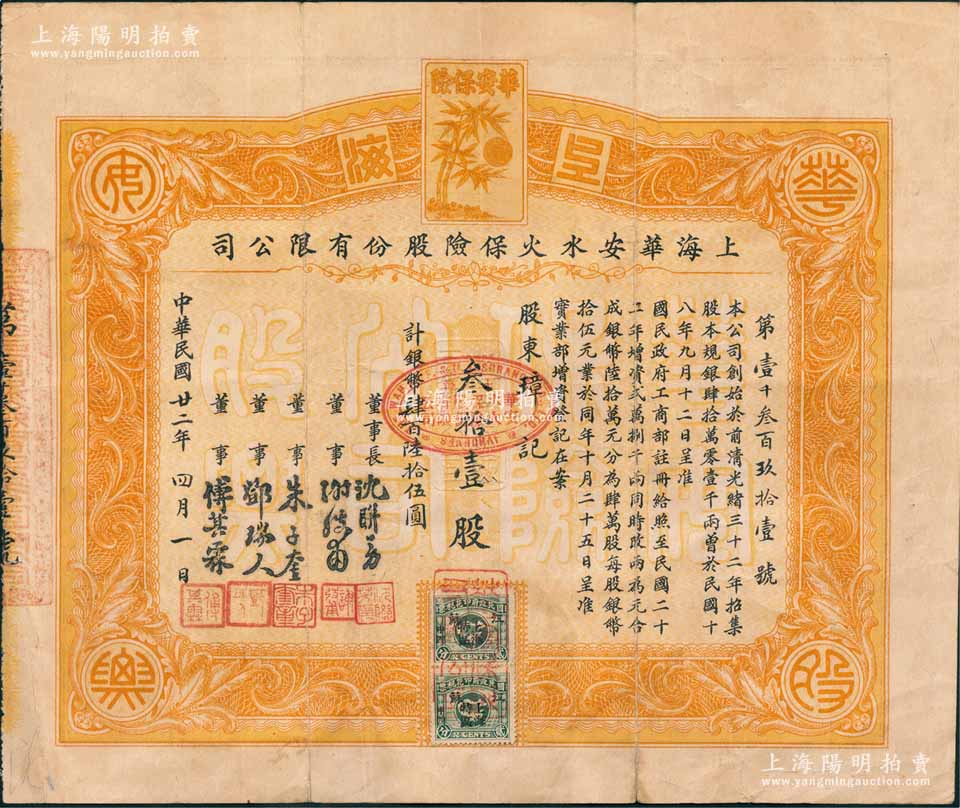 上海陽明拍賣
www.yangmingauction.com
華安保險
上海
華
安
股
輿
上海華安水火保險股份有限公司
第壹千叁百玖拾壹號
本公司創始於前清光緒三十二年招集
股本規銀肆拾萬零壹千兩曾於民國十
八年九月十二日呈准
國民政府工商部註冊給照至民國二十
二年增資弍萬捌千兩同時改兩為元合
成銀幣陸拾萬元分為肆萬股每股銀幣
拾伍元業於同年十月二十五日呈准
實業部增資登記在案
股東 璋記
叁拾壹股
計銀幣肆百陸拾伍圓
董事長 沈聯芳
董事
董事 朱子奎
董事 鄧瑞人
董事 傅其霖
中華民國廿二年四月一日
上海陽明拍賣
www.yangmingauction.com
2 CENTS
2 CENTS
上海陽明拍賣
www.yangmingauction.com